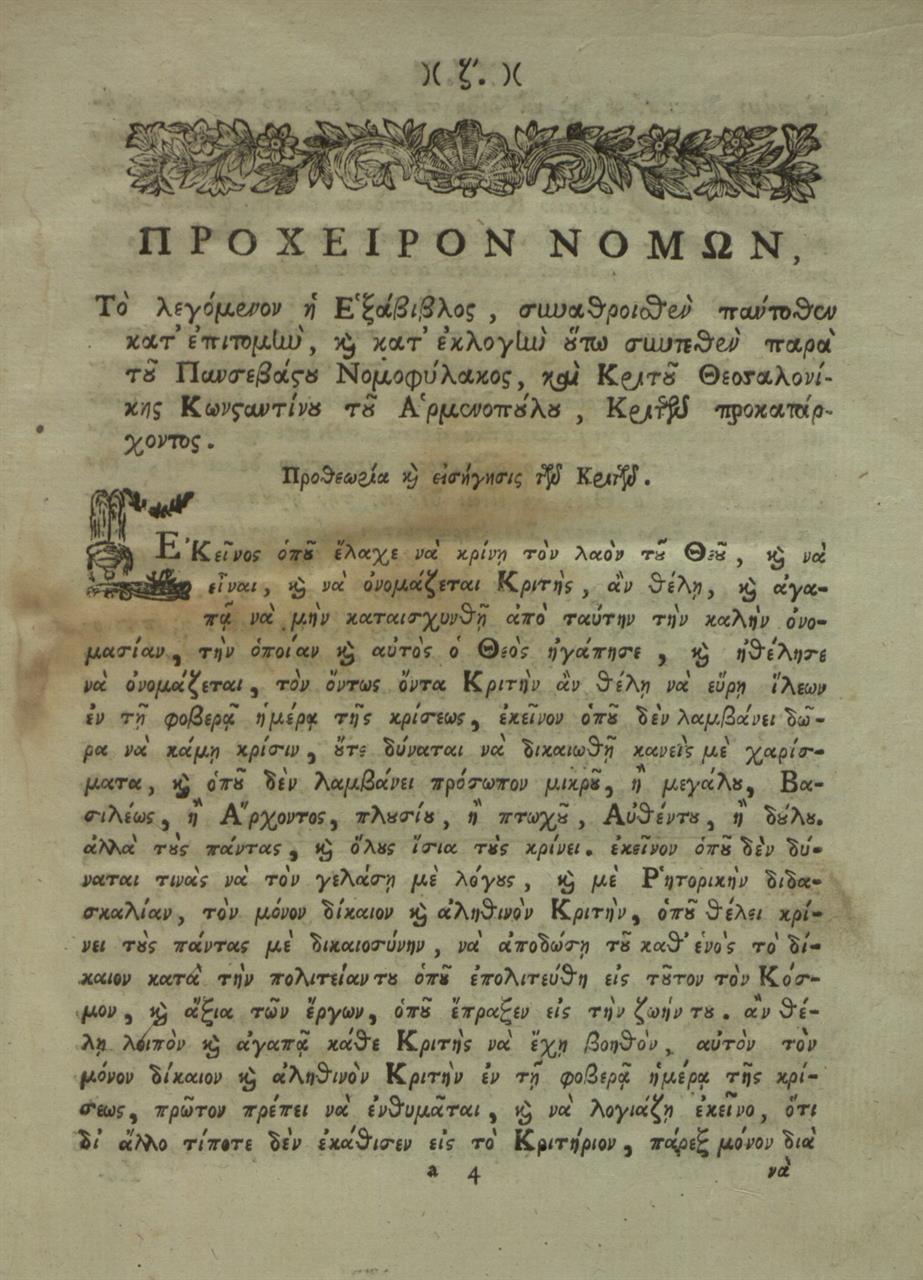 )( ζ'. )(
ΠΡΟΧΕΙΡΟΝ ΝΟΜΩΝ,
Τὸ λεγόμενον ἡ Ἑξάβιβλος, συναθροισθὲν πάντοθεν
κατ' ἐπιτομὴν, ϗ κατ' ἐκλογὴν ὅτω συντεθὲν παρὰ
τȣ͂ Πανσεβάϛȣ Νομοφύλακος, καὶ Κριτȣ͂ Θεσσαλονί-
κης Κωνϛαντίνȣ τȣ͂ Ἁρμενοπȣ́λȣ, Κριτῶν προκατάρ-
χοντος.
Προθεωρία ϗ εἰσήγησις τῶν Κριτῶν.
Ἐκεῖνος ὁπȣ͂ ἔλαχε νὰ κρίνῃ τὸν λαὸν τȣ͂ Θεȣ͂, ϗ νὰ
εἶναι, ϗ νὰ ὀνομάζεται Κριτὴς, ἂν θέλῃ, ϗ ἀγα-
πᾷ νὰ μὴν καταισχυνθῇ ἀπὸ ταύτην τὴν καλὴν ὀνο-
μασίαν, τὴν ὁποίαν ϗ αὐτὸς ὁ Θεὸς ἠγάπησε, ϗ ἠθέλησε
νὰ ὀνομάζεται, τὸν ὄντως ὄντα Κριτὴν ἂν θέλῃ νὰ εὕρῃ ἵλεων
ἐν τῇ φοβερᾷ ἡμέρᾳ τῆς κρίσεως, ἐκεῖνον ὁπȣ͂ δὲν λαμβάνει δῶ-
ρα νὰ κάμῃ κρίσιν, ȣ̓́τε δύναται νὰ δικαιωθῇ κανεὶς μὲ χαρίσ-
ματα, ϗ ὁπȣ͂ δὲν λαμβάνει πρόσωπον μικρȣ͂, ἢ μεγάλȣ, Βα-
σιλέως, ἢ Ἄρχοντος, πλȣσίȣ, ἢ πτωχȣ͂, Αὐθέντȣ, ἢ δȣ́λȣ.
ἀλλὰ τȣ̀ς πάντας, ϗ ὅλȣς ἴσια τȣ̀ς κρίνει. ἐκεῖνον ὁπȣ͂ δὲν δύ-
ναται τινὰς νὰ τὸν γελάσῃ μὲ λόγȣς, ϗ μὲ Ῥητορικὴν διδα-
σκαλίαν, τὸν μόνον δίκαιον ϗ ἀληθινὸν Κριτὴν, ὁπȣ͂ θέλει κρί-
νει τȣ̀ς πάντας μὲ δικαιοσύνην, νὰ ἀποδώσῃ τȣ͂ καθ' ἑνὸς τὸ δί-
καιον κατὰ τὴν πολιτείαν τȣ ὁπȣ͂ ἐπολιτεύθη εἰς τȣ͂τον τὸν Κόσ-
μον, ϗ ἄξια τῶν ἔργων, ὁπȣ͂ ἔπραξεν εἰς τὴν ζωήν τȣ. ἂν θέ-
λῃ λοιπὸν ϗ ἀγαπᾷ κάθε Κριτὴς νὰ ἔχῃ βοηθὸν, αὐτὸν τὸν
μόνον δίκαιον ϗ ἀληθινὸν Κριτὴν ἐν τῇ φοβερᾷ ἡμέρᾳ τῆς κρί-
σεως, πρῶτον πρέπει νὰ ἐνθυμᾶται, ϗ νὰ λογιάζῃ ἐκεῖνο, ὅτι
δι' ἄλλο τίποτε δὲν ἐκάθισεν εἰς τὸ Κριτήριον, πάρεξ μόνον διὰ
a 4 νὰ